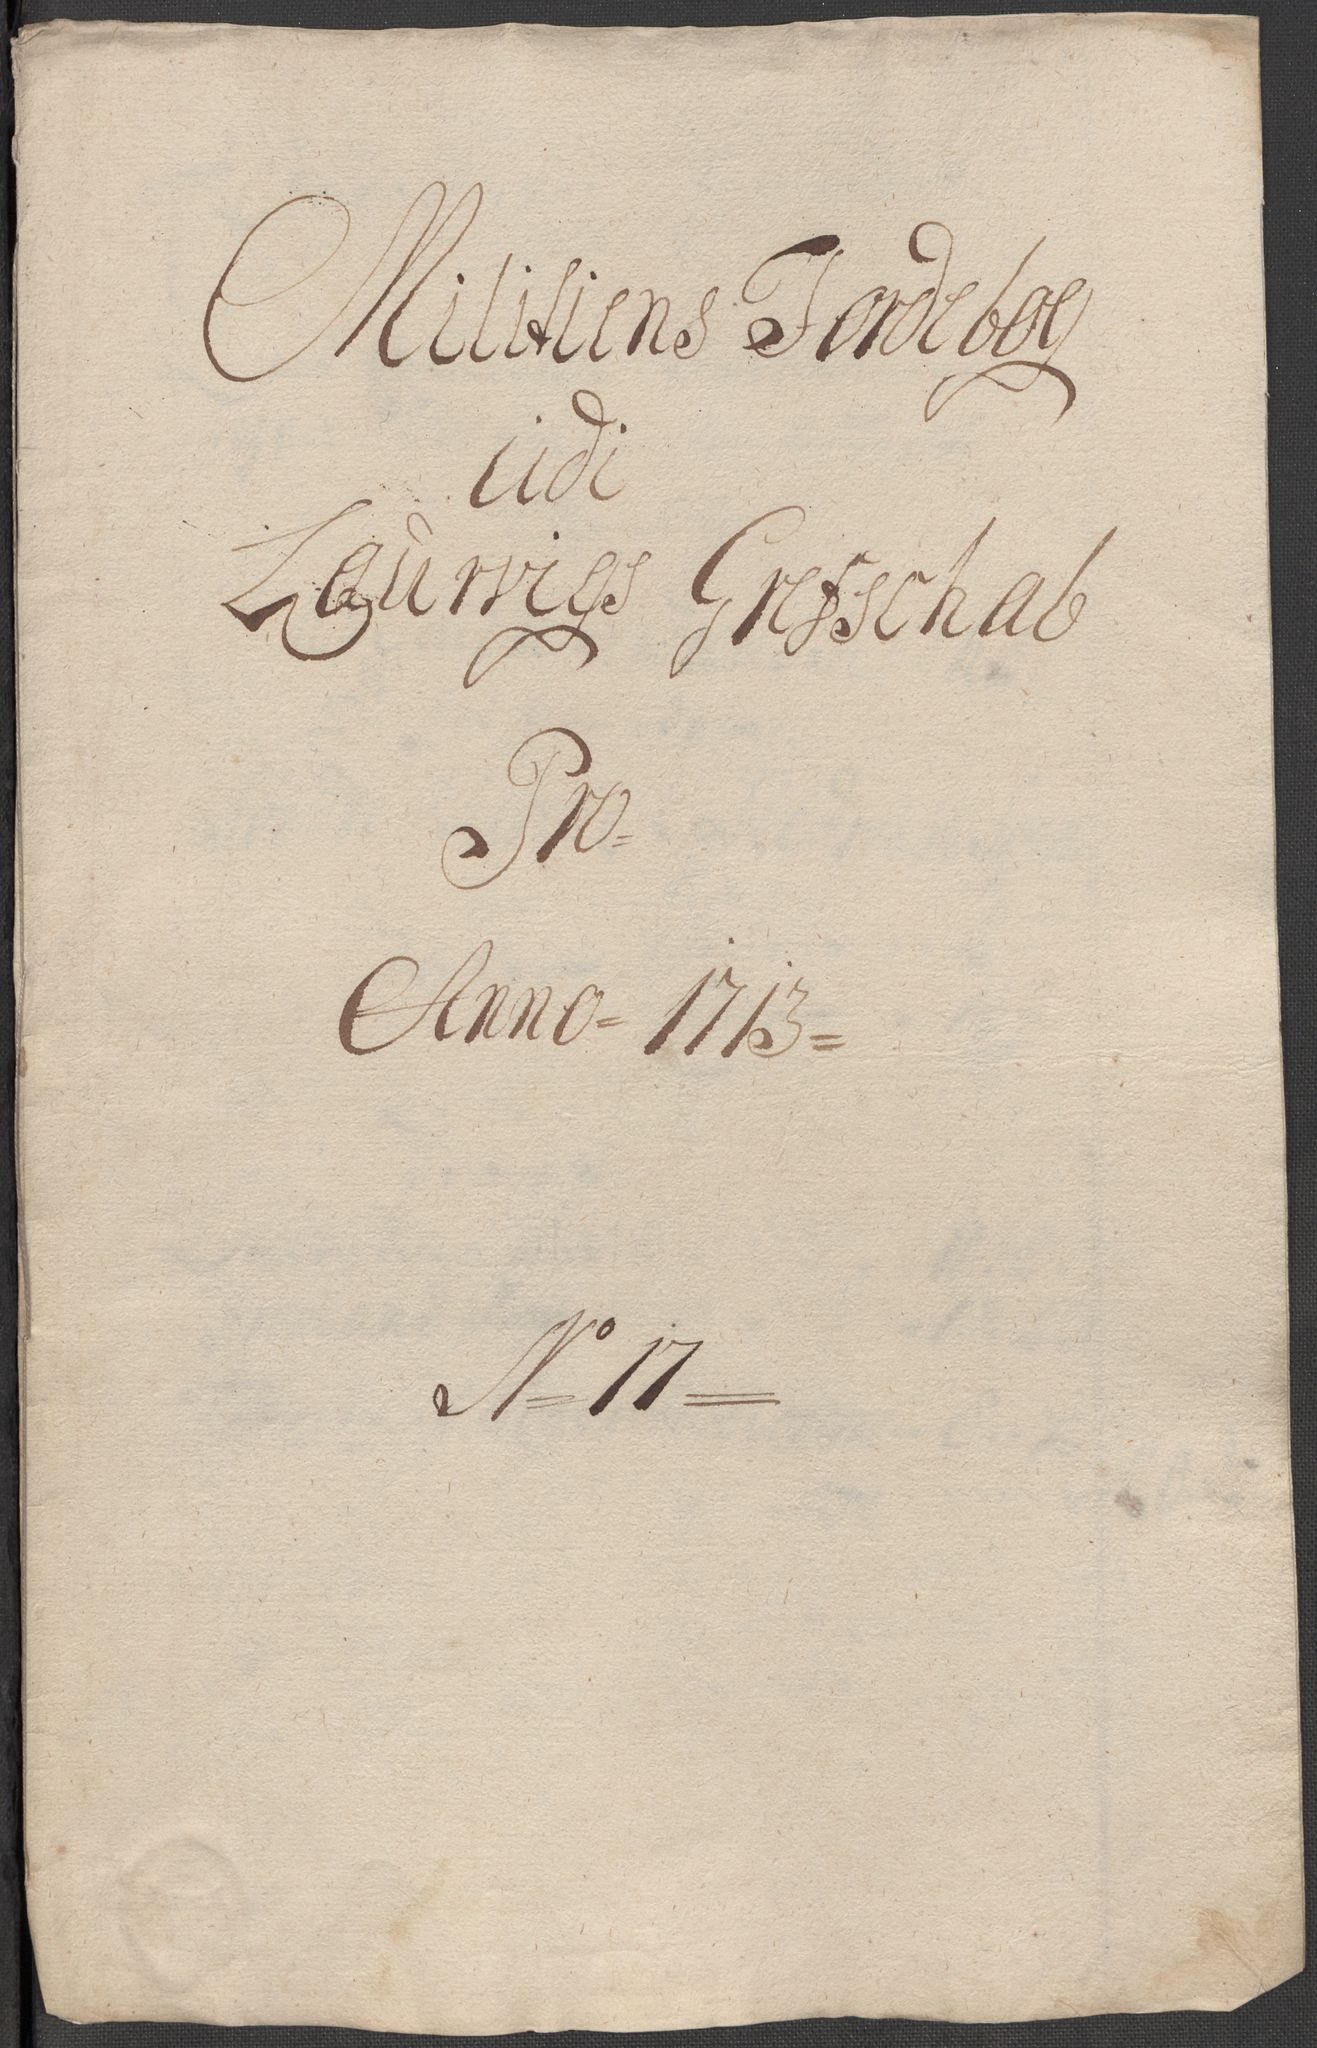 Militiens Jordebog
udi
Laurvigs Grefschab
Pro-
Anno- 1713=
No= 17=